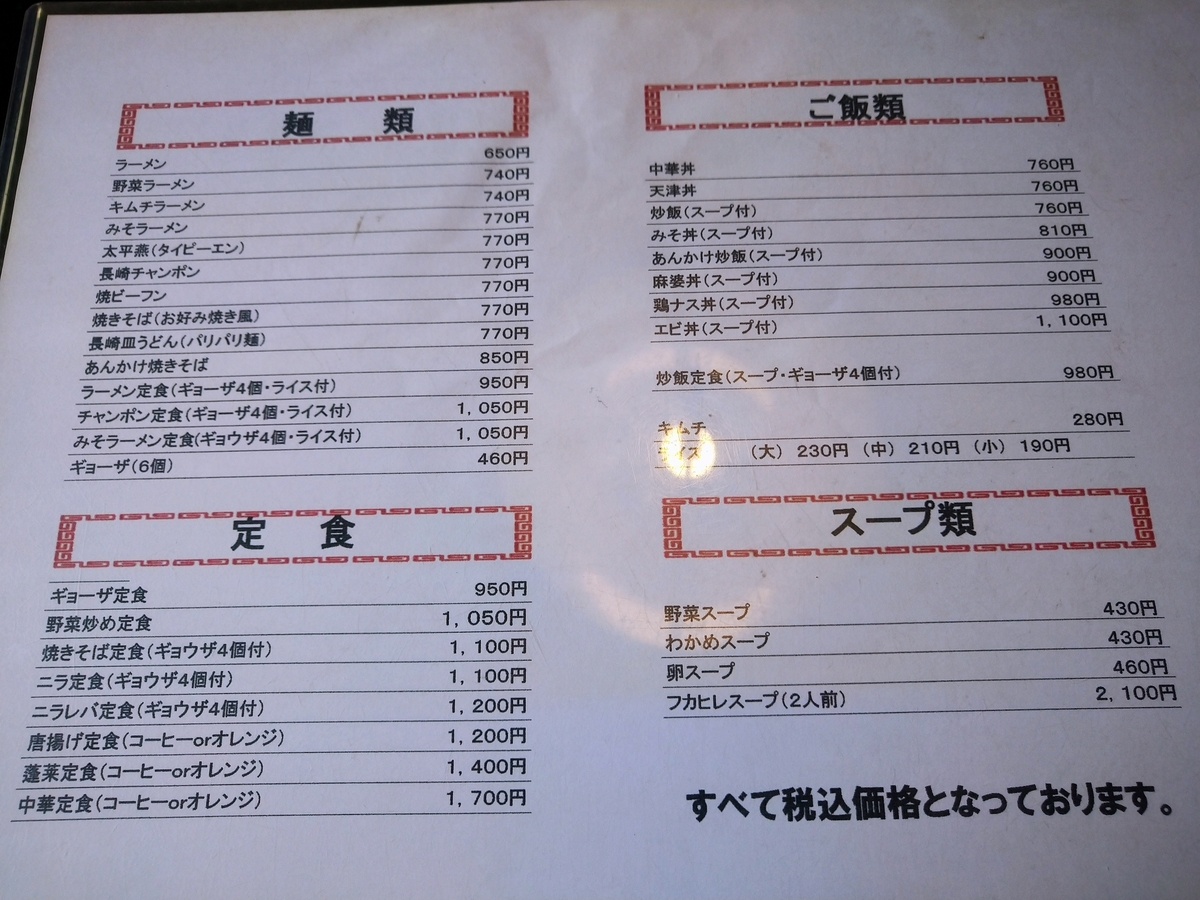 麺 類
ラーメン 650円
野菜ラーメン 740円
キムチラーメン 740円
みそラーメン 770円
太平燕(タイピーエン) 770円
長崎チャンポン 770円
焼ビーフン 770円
焼きそば(お好み焼き風) 770円
長崎皿うどん(パリパリ麺) 770円
あんかけ焼きそば 850円
ラーメン定食(ギョーザ4個・ライス付) 950円
チャンポン定食(ギョーザ4個・ライス付) 1,050円
みそラーメン定食(ギョウザ4個・ライス付) 1,050円
ギョーザ(6個) 460円
定 食
ギョーザ定食 950円
野菜炒め定食 1,050円
焼きそば定食(ギョウザ4個付) 1,100円
ニラ定食(ギョウザ4個付) 1,100円
ニラレバ定食(ギョウザ4個付) 1,200円
唐揚げ定食(コーヒーorオレンジ) 1,200円
蓬莱定食(コーヒーorオレンジ) 1,400円
中華定食(コーヒーorオレンジ) 1,700円
ご飯類
中華丼 760円
天津丼 760円
炒飯(スープ付) 760円
みそ丼(スープ付) 810円
あんかけ炒飯(スープ付) 900円
麻婆丼(スープ付) 900円
鶏ナス丼(スープ付) 980円
エビ丼(スープ付) 1,100円
炒飯定食(スープ・ギョーザ4個付) 980円
キムチ 280円
ライス (大) 230円 (中) 210円 (小) 190円
スープ類
野菜スープ 430円
わかめスープ 430円
卵スープ 460円
フカヒレスープ(2人前) 2,100円
すべて税込価格となっております。